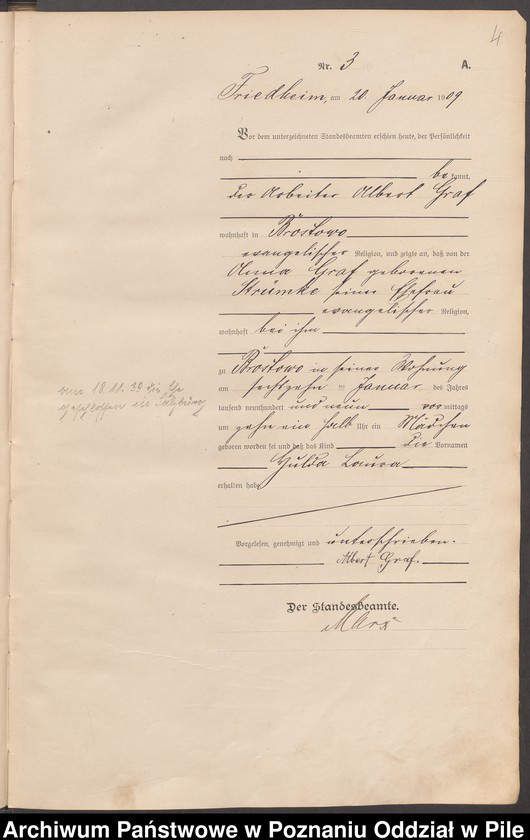 4
Nr. 3 A.
Friedheim, am 20 Januar 1909
Vor dem unterzeichneten Standesbeamten erschien heute, der Persönlichkeit
nach
bekannt,
der Arbeiter Albert Graf
wohnhaft in Brostowo
evangelischer Religion, und zeigte an, daß von der
Anna Graf geborenen
Strümke seiner Ehefrau
evangelischer Religion,
wohnhaft bei ihm
zu Brostowo in seiner Wohnung
am sechszehn ten Januar des Jahres
tausend neunhundert und neun vor mittags
um zehn ein halb Uhr ein Mädchen
geboren worden sei und daß das Kind die Vornamen
Hulda Laura
erhalten habe
am 18.11.39 die Ehe
geschlossen in
Vorgelesen, genehmigt und unterschrieben.
Albert Graf.
Der Standesbeamte.
Marx
Archiwum Państwowe w Poznaniu Oddział w Pile